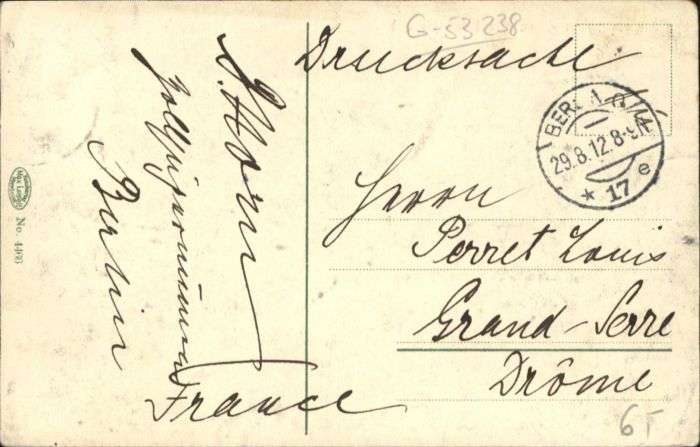 G-53238
Drucksache
BERLIN
29.8.12.8-9N
* 17 e
Herrn
Perret Louis
Grand-Serre
Drôme
France
Berlin
No. 4493
6F